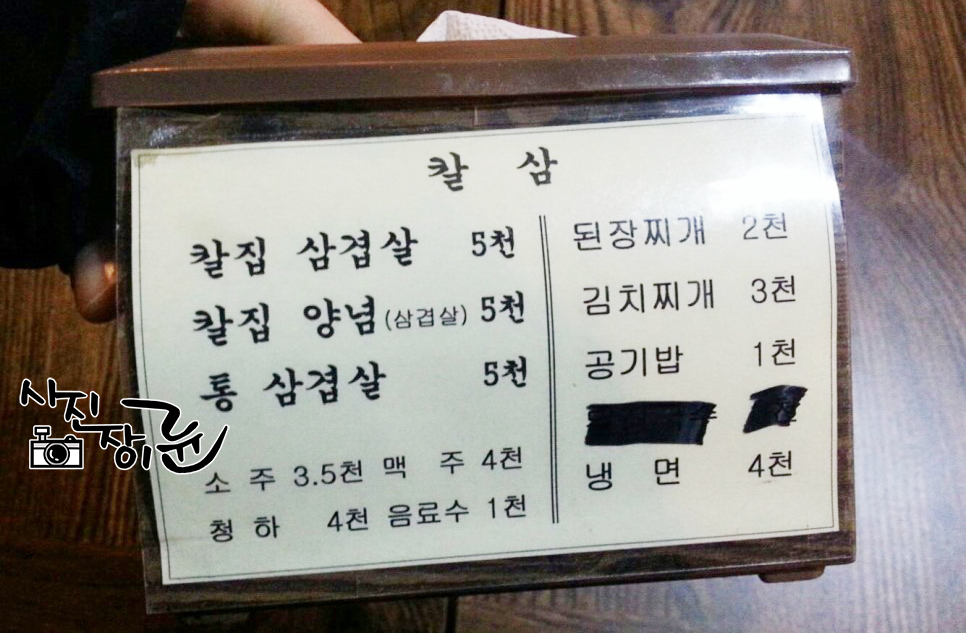 칼 삼
칼집 삼겹살 5천
칼집 양념(삼겹살) 5천
통 삼겹살 5천
소 주 3.5천 맥 주 4천
청 하 4천 음료수 1천
된장찌개 2천
김치찌개 3천
공기밥 1천
냉 면 4천
사진
장이 균